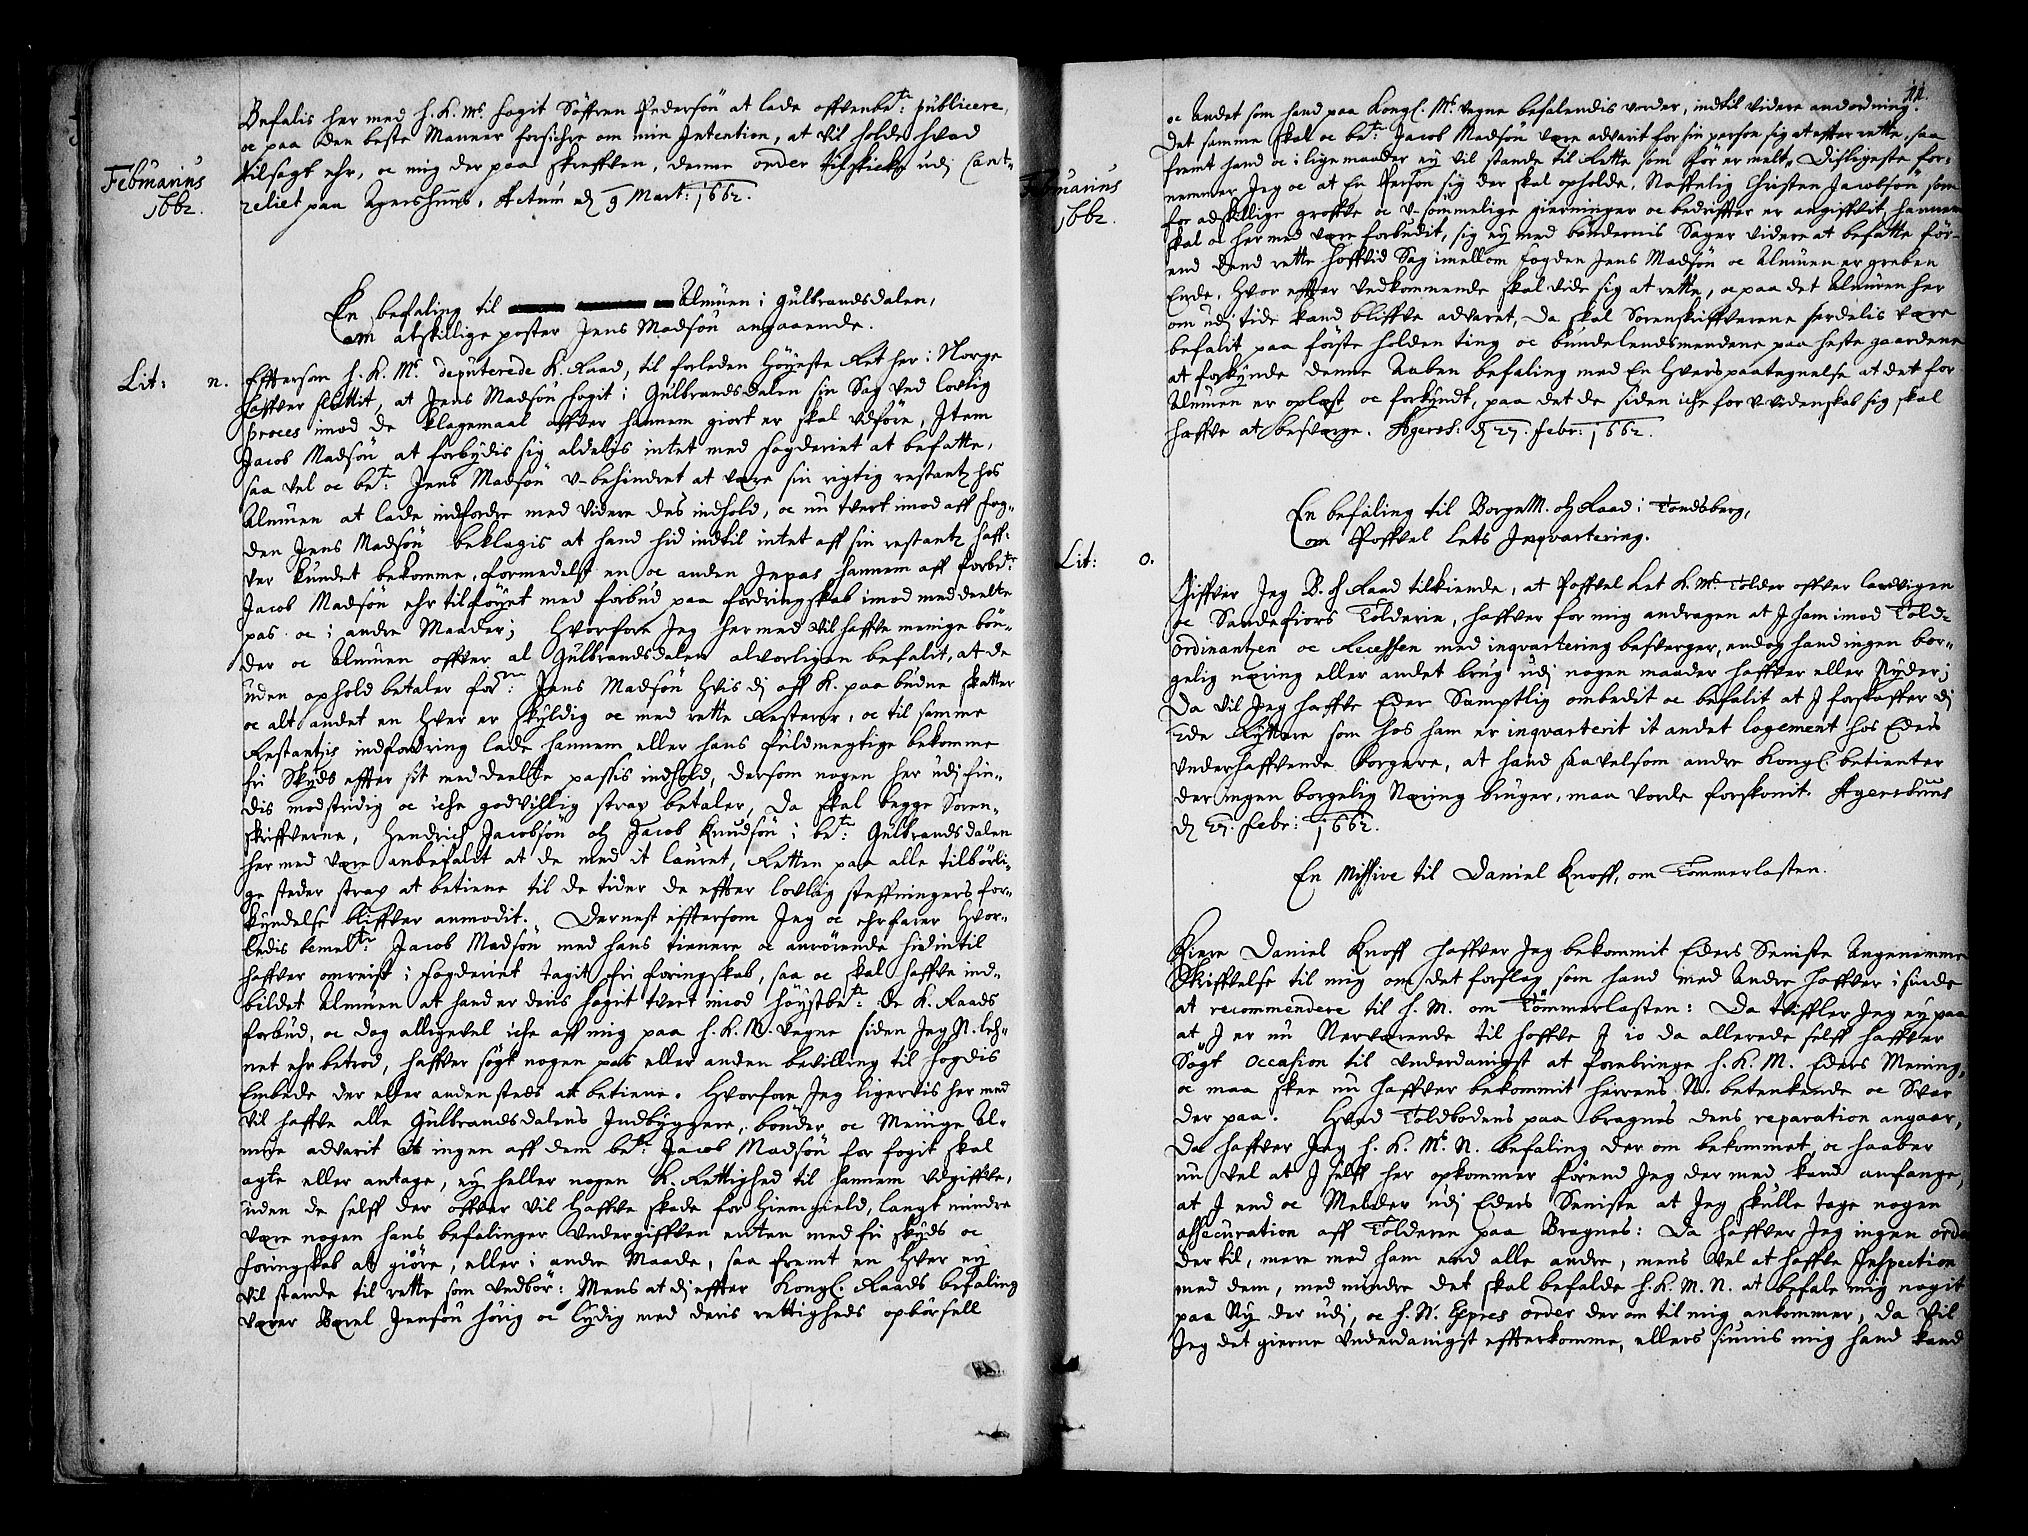 Befalis her med h. K. Mts. fogit Söffren Pedersön at lade offvenbete: publicere,
oc paa den beste Manneer forsichre om min Intention, at vil holde hvad
tilsagt ehr, oc mig der paa skreffven, denne order tilskicke udj Cant-
zeliet paa Agershuus. Actum dj 9 Mart: 1662.
Februarius
1662.
En befaling til Almuen i Gulbrandsdalen,
om atskillige poster Jens Madsön angaaende.
Lit: n.
Efftersom h. K. Mts. deputerede K. Raad, til forleden Höyeste Ret her i Norge
haffver sluttit, at Jens Madsön fogit i Gulbrandsdalen sin Sag ved lovlig
proces imod de klagemaal offver hannem giort er skal udföre, Item
Jacob Madsön at forbydis sig aldelis intet med fogderiet at befatte,
saa vel oc bete: Jens Madsön v-behindret at være sin rigtig restantz hos
Almuen at lade indfordre med videre des indhold, oc nu tvert imod aff fog-
den Jens Madsön beklagis at hand hid indtil intet aff sin restantz haff-
ver kundet bekomme, formedelst en oc anden Inpas hannem aff forbete:
Jacob Madsön ehr tilföyet med forbud paa fordringskab imod meddeelte
pas oc i andre Maader; Hvorfore Jeg hermed vil haffve menige bön-
der oc Almuen offver al Gulbrandsdalen alvorligen befalit, at de
uden ophold betaler forne: Jens Madsön hvis dj aff K. paabudne skatter
oc alt andet en hver er skyldig oc med rette Resterer, oc til samme
Restantzis indfordring lade hannem eller hans fuldmegtige bekomme
fri Skyds effter sit meddeelte passis indhold, dersom nogen her udj fin-
dis modstridig oc iche godvillig strax betaler, da skal begge Soren-
skriffverne, Hendrich Jacobsön oh Jacob Knudsön i bete: Gulbrandsdalen
hermed være anbefalit at de med it lauret, Retten paa alle tilbörli-
ge steder strax at betiene til de tider de effter lovlig steffningers for-
kyndelse bliffver anmodit. Dernest efftersom Jeg oc ehrfarer hvor-
ledis bemelte: Jacob Madsön med hans tienere oc anrörende hidintil
haffver omreist i fogderiet tagit fri foringskab, saa oc skal haffve ind-
bildet Almuen at hand er deris fogit tvert imod höystbete: de K. Raads
forbud, oc dog alligevel iche aff mig paa h. K. M. vegne siden Jeg N. leh-
net ehr betrod, haffver sögt nogen pas eller anden bevilling til fogdis
Embede der eller anden steds at betiene. Hvorfore Jeg ligervis her med
vil haffve alle Gulbrandsdalens Indbyggere, bönder oc Meniige Al-
mue advarit at ingen aff dem bete: Jacob Madsön for fogit skal
agte eller antage, ey heller nogen K. Rettighed til hannem udgiffve,
uden de selff der offver vil haffve skade for hiemgield, langt mindre
være nogen hans befalinger undergiffven enten med fri skyds oc
föringskab at giöre, eller i andre Maade, saa fremt en hver ey
vil stande til rette som vedbör: Mens at dj effter Kongl. Raads befaling
værer Boxel Jensön hörig oc lydig med deris rettigheds opbörsell
11.
Februarius
1662.
oc Andet som hand paa Kongl. Mts. vegne befalendis vorder, indtil videre andordning.
Det samme skal oc bete: Jacob Madsön være advarit for sin person sig at effterrette, saa
fremt hand oc i lige maader ey vil stande til Rette som för er melt. Disligeste for-
nemmer Jeg oc at En Person sig der skal opholde, Naffnlig Christen Jacobsön som
for adskillige groffve oc v-sömmelige gierninger oc bedriffter er angiffvit, hannem
skal oc hermed være forbudit, sig ey med bönderenis Sager videre at befatte för-
end dend rette hoffvid Sag imellom fogden Jens Madsön oc Almuen er greben
Ende. Hvor effter vedkommende skal vide sig at rette, oc paa det Almuen her
om udj tide kand bliffve advaret, da skal Sorenskriffverene serdelis være
befalit paa förste holden ting oc bundelendsmendene paa heste gaardene
at forkynde denne Aaben befaling med En hvers paategnelse at det for
Almuen er oplæst oc forkyndt, paa det de siden iche for v-videnskab sig skal
haffve at besverge. Agersh: dj 27. febr: 1662.
En befaling til BorgeM. oh Raad i Tondsberg,
om Poffvel Lets Inqvartering.
Lit: o.
Giffver Jeg B. oh Raad tilkiende, at Poffvel Let K. Mts. Tolder offver Laurvigen
oc Sandefiors Tolderie, haffver for mig andragen at I ham imod Told-
ordinantzen oc Recessen med inqvartering besverger, endog hand ingen bor-
gelig næring eller andet brug udj nogen maader haffver eller Nyder;
Da vil Jeg haffve Eder Samptlig ombedit oc befalit at I forskaffer dj
2de Ryttere som hos ham er inqvarterit it andet logement hos Eders
underhaffvende borgere, at hand saavelsom andre Kongl. betienter
der ingen borgelig Næring bruger, maa vorde forskonit. Agershuus
dj 27. febr: 1662.
En Missive til Daniel Knoff, om Tömmerlasten.
Kiere Daniel Knoff haffver Jeg bekommit Eders Seniste Angenemme
Skriffvelse til mig om det forslag som hand med Andre haffver i sinde
at recommendere til h. M. om Tömmerlasten: Da tviffler Jeg ey paa
at I er nu Nerværende til hoffve I io da allerede selff haffver
Sögt occasion til underdanigst at forebringe h. K. M. Eders Mening,
oc maa skee nu haffver bekommit herrens N. betenkende oc Svar
der paa. Hvad Toldbodens paa bragnes dens reparation angaar,
Da haffver Jeg h. K. Mts. N. befaling der om bekommet, oc haaber
nu vel at I selff her opkommer förend Jeg der med kand anfange,
at I end oc Melder udj Eders Seniste at Jeg skulle tage nogen
assecuration aff Tolderen paa Bragnes: Da haffver Jeg ingen order
der til, mere med ham end alle andre, mens vel at haffve Inspection
med dem, med mindre det skal befalde h. K. M. N. at befale mig nogit
paa Ny der udj, oc h. N. Expres order der om til mig ankommer, da vil
Jeg det gierne underdanigst effterkomme, ellers siunis mig hand kand